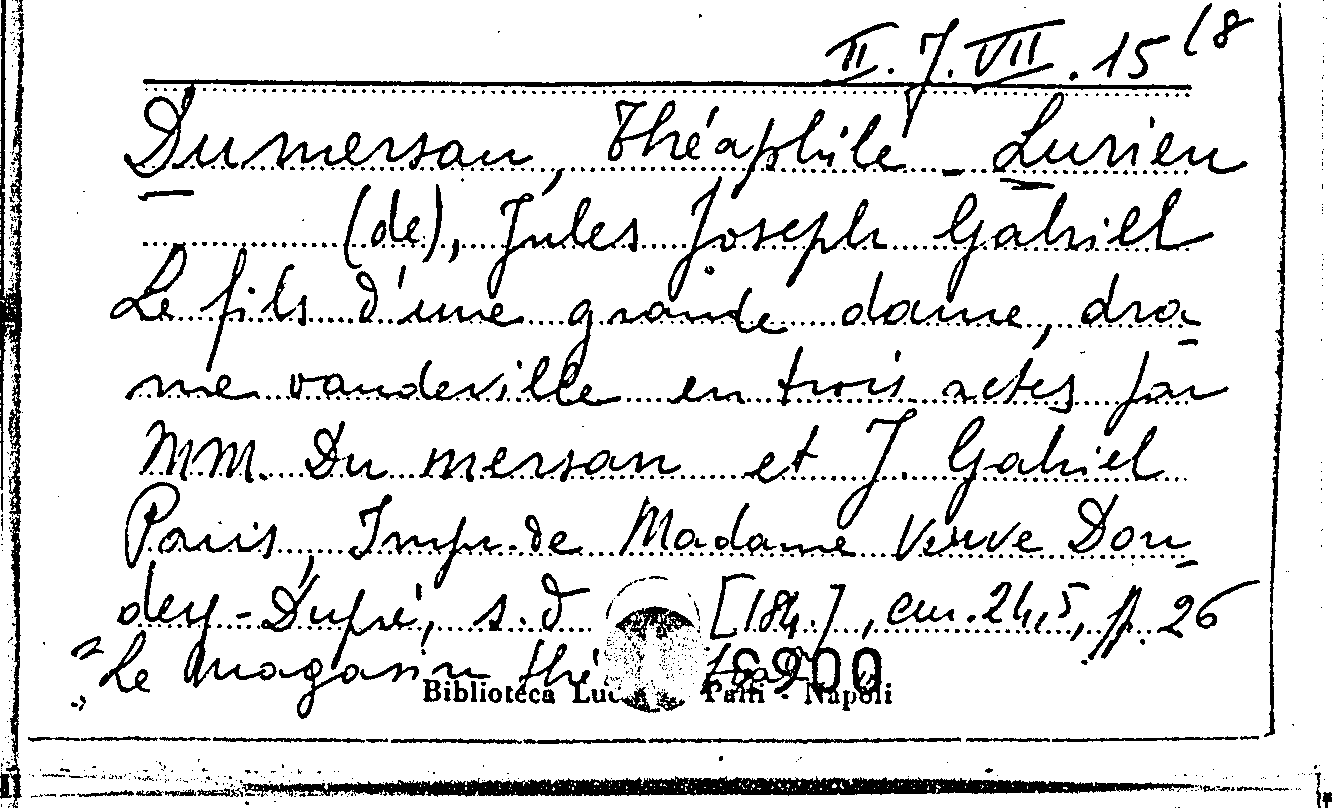 II. J. VII. 15 18
Dumersan, Théaphile - Lurieu
(de), Jules Joseph Gabriel
Le fils d'une grande dame, dra-
me vaudeville en trois actes par
MM. Du mersan et J. Gabriel
Paris, Impr. de Madame Veuve Don-
dey-Dupré, s.d [184.], cm. 24,5, pp. 26
"Le magasin théâtral"
6900
Biblioteca Palli - Napoli